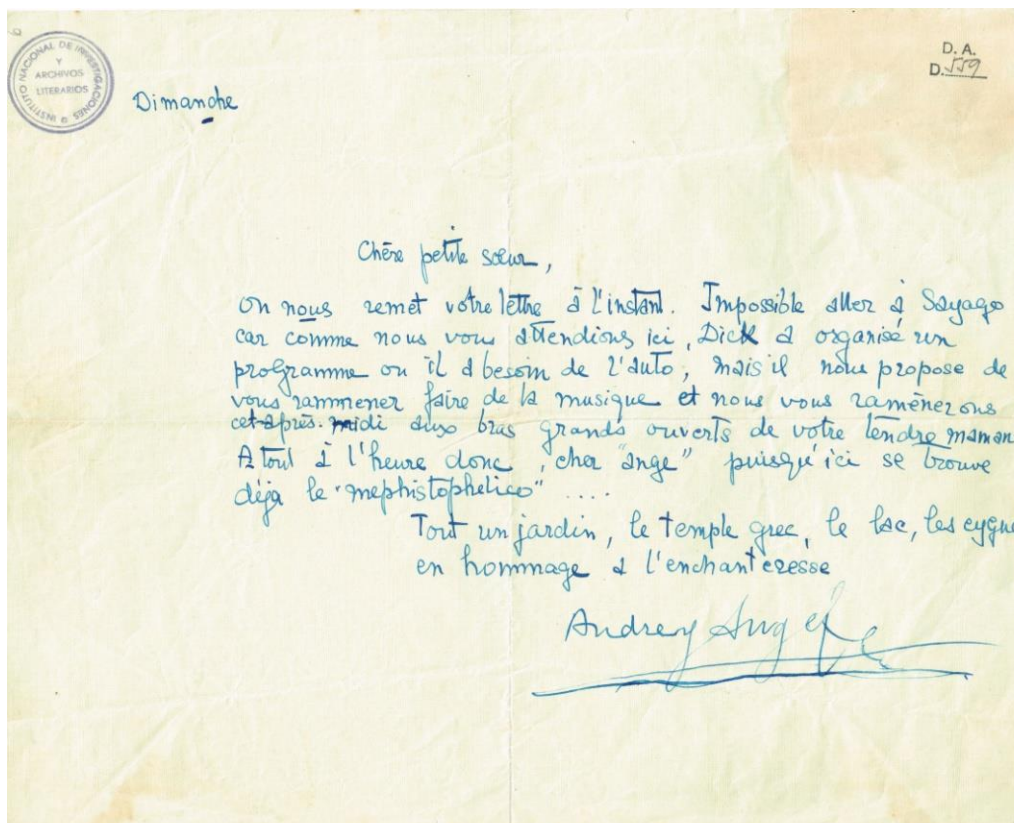 INSTITUTO NACIONAL DE INVESTIGACIONES
Y
ARCHIVOS
LITERARIOS
6
D. A.
D. 559
Dimanche
Chère petite sœur,
On nous remet votre lettre à l'instant. Impossible aller à Sayago
car comme nous vous attendions ici, Dick a organisé un
programme ou il a besoin de l'auto, mais il nous propose de
vous rammener faire de la musique et nous vous ramènerons
cet après-midi aux bras grands ouverts de votre tendre maman
A tout à l'heure donc, cher "ange" puisqu'ici se trouve
déja le "mephistophelico" ....
Tout un jardin, le temple grec, le lac, les cygne
en hommage à l'enchanteresse
Audrey